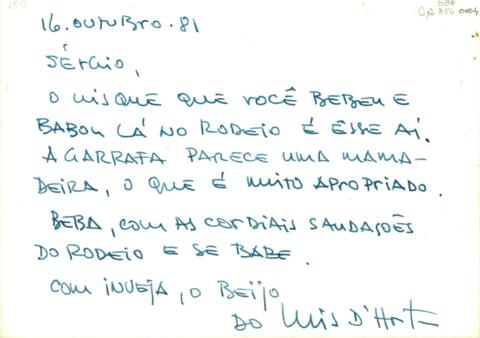 150
SBH
Cp 350 P104
16.OUTUBRO.81
SÉRGIO,
O UISQUE QUE VOCÊ BEBEU E
BABOU LÁ NO RODEIO É ÊSSE AÍ.
A GARRAFA PARECE UMA MAMA-
DEIRA, O QUE É MUITO APROPRIADO.
BEBA, COM AS CORDIAIS SAUDAÇÕES
DO RODEIO E SE BABE.
COM INVEJA, O BEIJO
DO Luis D'Horta